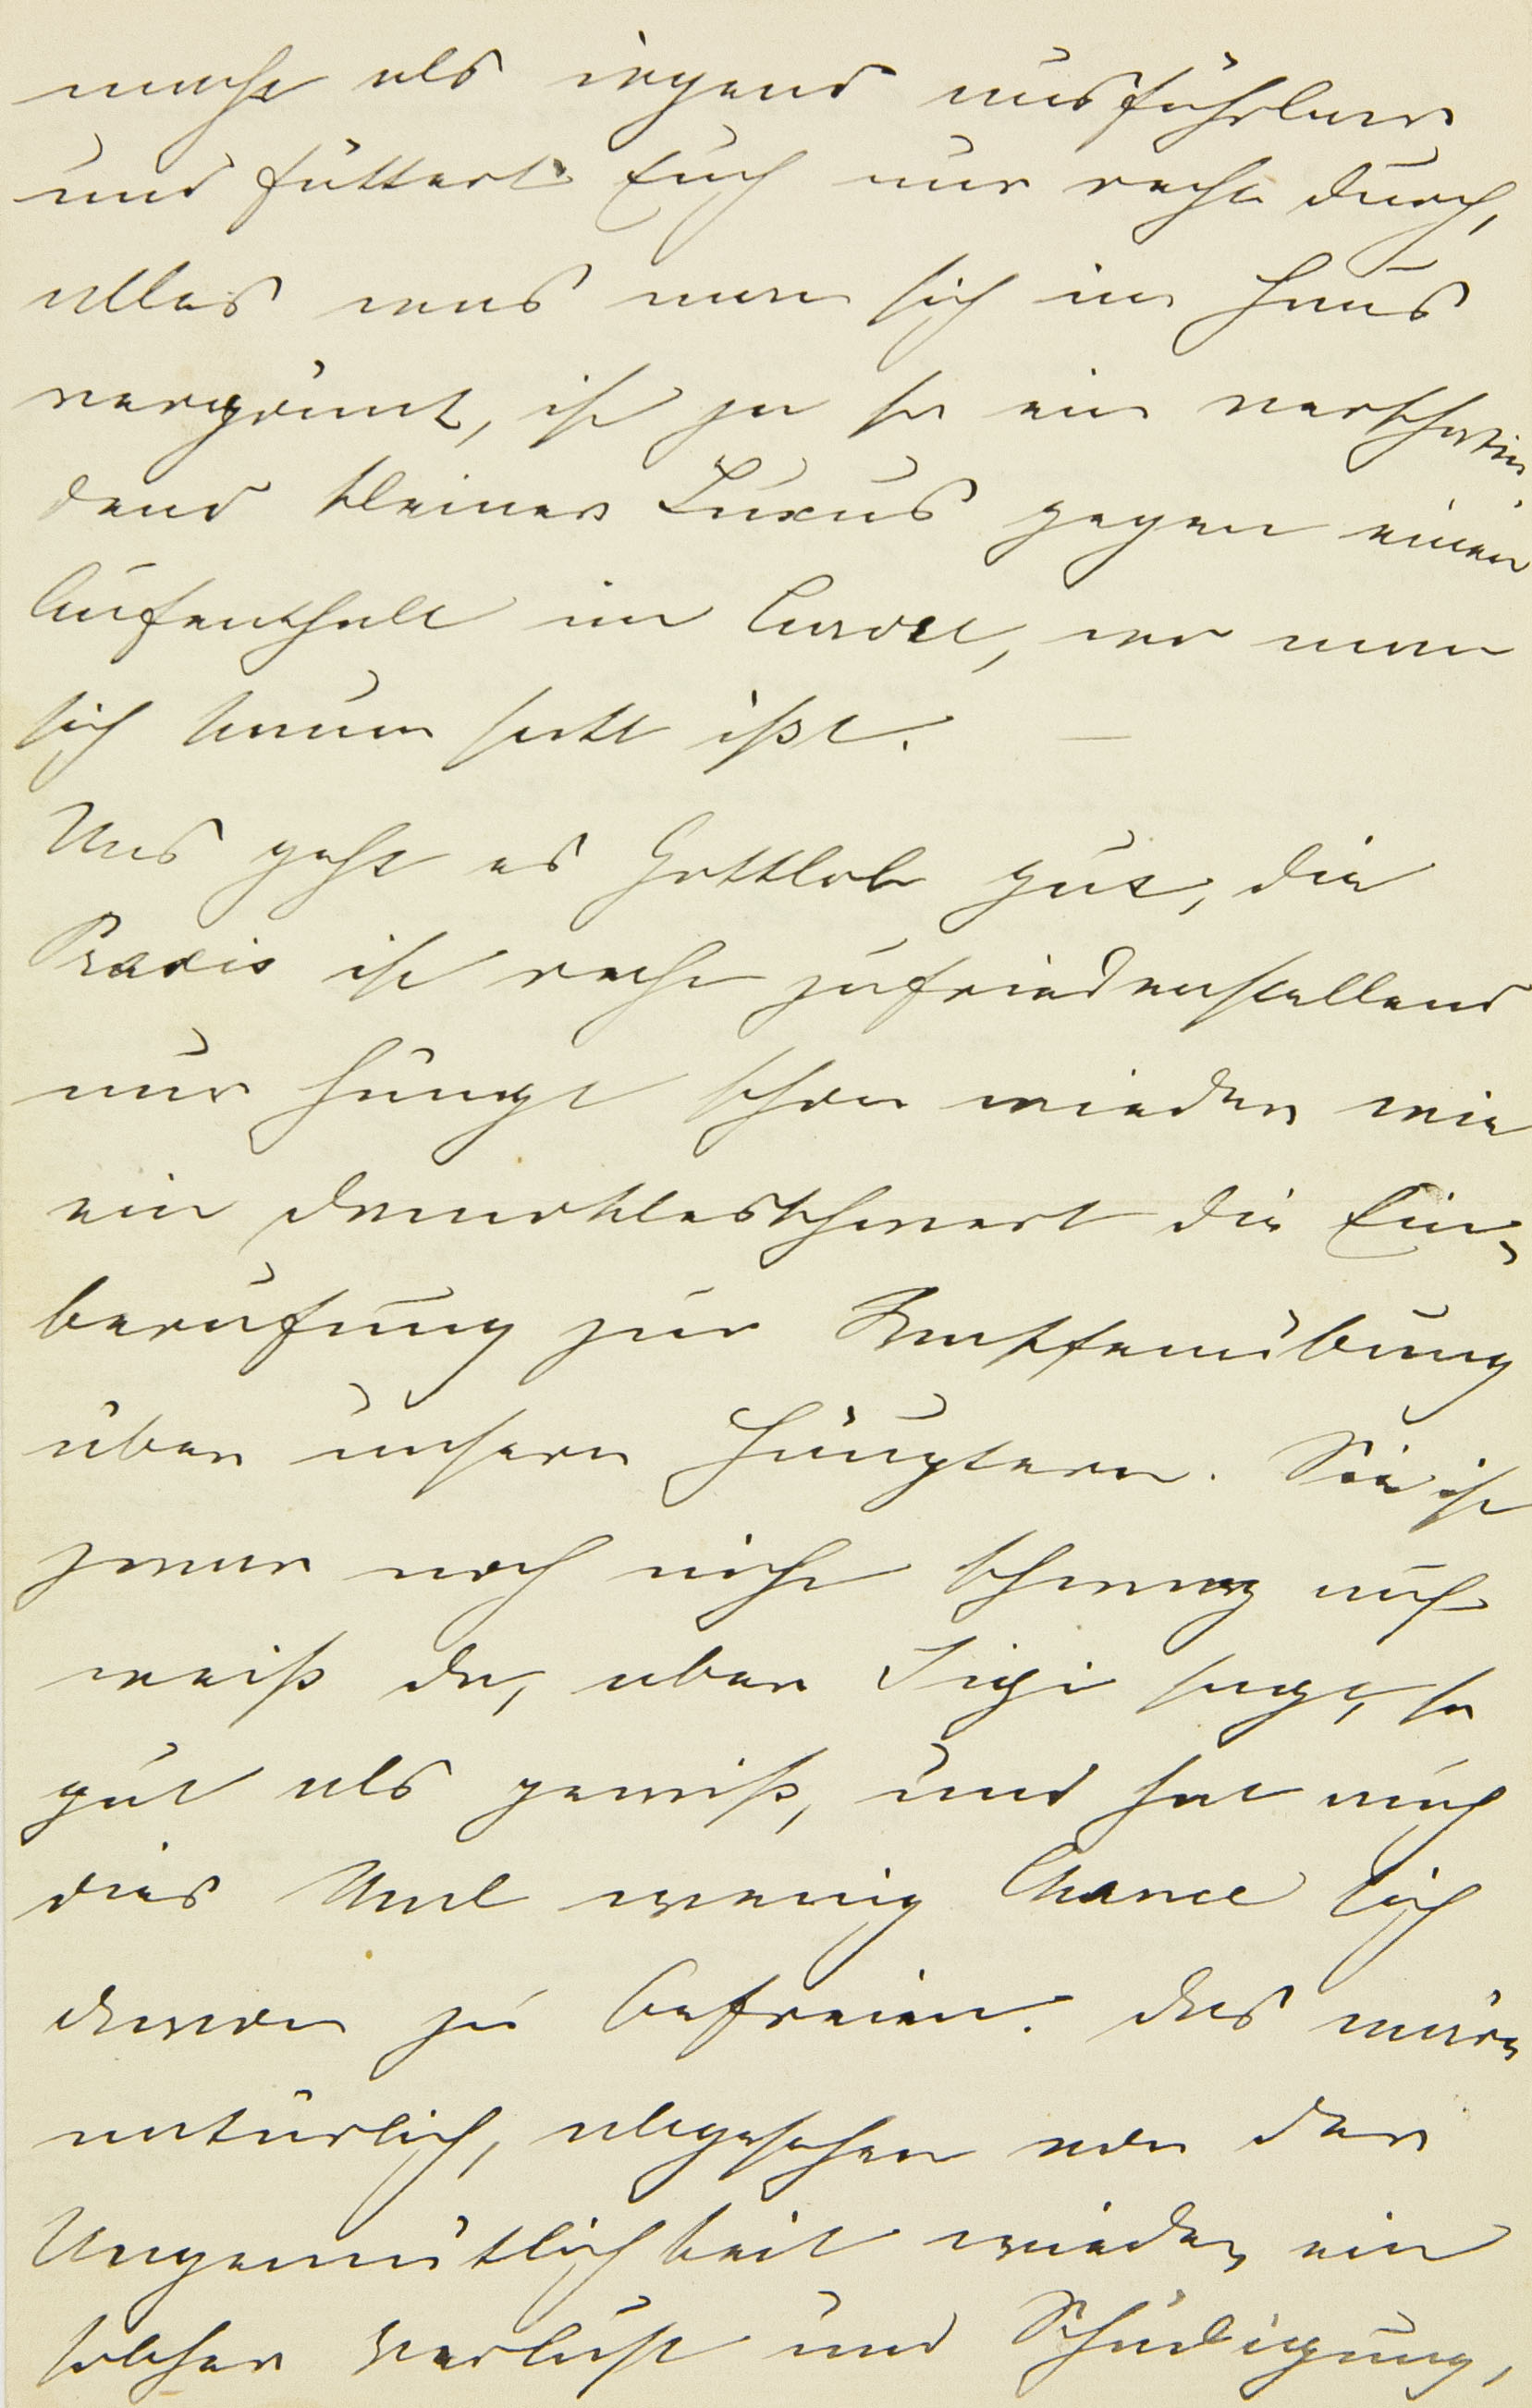 macht als irgend ausführbar
und füttert Euch nur recht durch,
alles was man sich im Haus
vergönnt, ist ja so ein verschwin-
dend kleiner Luxus gegen einen
Aufenthalt im Curort, wo man
sich kaum satt ißt. —
Uns geht es Gottlob gut, die
Praxis ist recht zufriedenstellend
nur hängt schon wieder wie
ein Damoklesschwert die Ein-
berufung zur Waffenübung
über unsern Häuptern. Sie ist
zwar noch nicht schwarz auf
weiß da, aber Sigi sagt, so
gut als gewiß, und hat auch
dies Mal wenig Chance sich
davon zu befreien. Das wäre
natürlich, abgesehen von der
Ungemütlichkeit wieder ein
solcher Verlust und Schädigung,